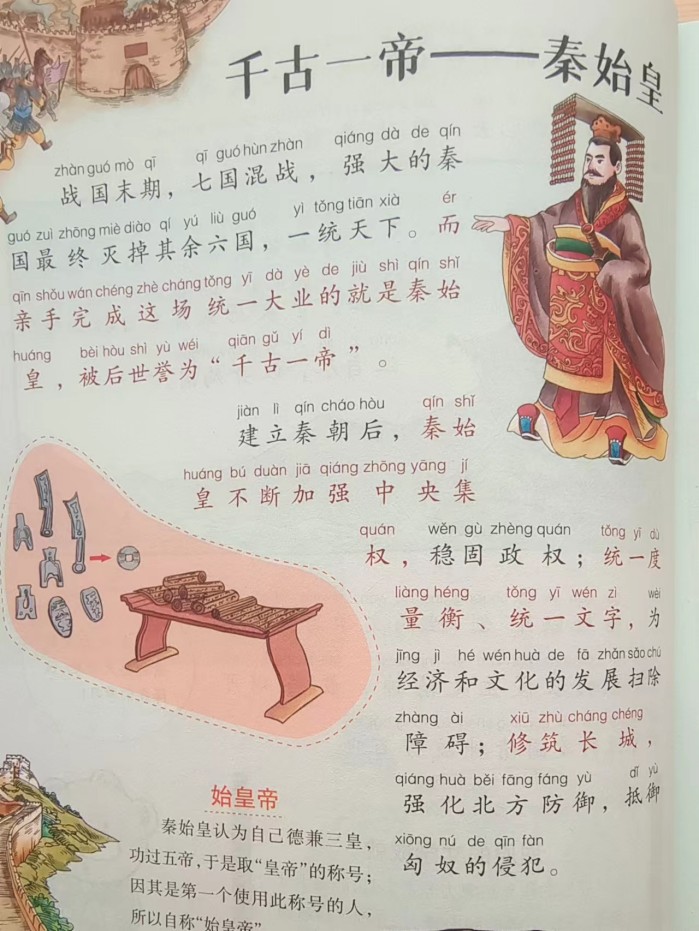 千古一帝——秦始皇
zhàn guó mò qī qī guó hùn zhàn qiáng dà de qín
战国末期，七国混战，强大的秦
guó zuì zhōng miè diào qí yú liù guó yì tǒng tiān xià ér
国最终灭掉其余六国，一统天下。而
qīn shǒu wán chéng zhè cháng tǒng yī dà yè de jiù shì qín shǐ
亲手完成这场统一大业的就是秦始
huáng bèi hòu shì yù wéi qiān gǔ yí dì
皇，被后世誉为“千古一帝”。
jiàn lì qín cháo hòu qín shǐ
建立秦朝后，秦始
huáng bú duàn jiā qiáng zhōng yāng jí
皇不断加强中央集
quán wěn gù zhèng quán tǒng yī dù
权，稳固政权；统一度
liàng héng tǒng yī wén zì wèi
量衡、统一文字，为
jīng jì hé wén huà de fā zhǎn sǎo chú
经济和文化的发展扫除
zhàng ài xiū zhù cháng chéng
障碍；修筑长城，
qiáng huà běi fāng fáng yù dǐ yù
强化北方防御，抵御
xiōng nú de qīn fàn
匈奴的侵犯。
始皇帝
秦始皇认为自己德兼三皇，
功过五帝，于是取“皇帝”的称号；
因其是第一个使用此称号的人，
所以自称“始皇帝”